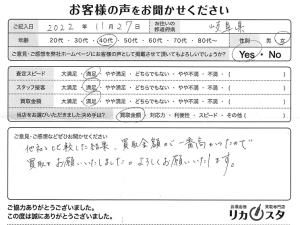 お客様の声をお聞かせください
ご記入日 2022年11月27日 お住いの都道府県 岐阜県
年齢 20代・30代・40代・50代・60代・70代・80代〜 性別 男・女
ご意見・ご感想を弊社ホームページにお客様の声として掲載させて頂いてもよろしいでしょうか? Yes・No
査定スピード 大満足・満足・やや満足・どちらでもない・やや不満・不満・( )
スタッフ接客 大満足・満足・やや満足・どちらでもない・やや不満・不満・( )
買取金額 大満足・満足・やや満足・どちらでもない・やや不満・不満・( )
当店をお選びいただきました決め手は? 買取金額・対応力・利便性・スピード・その他( )
ご意見・ご感想などぜひお聞かせください
他社と比較した結果、買取金額が一番高かったので
買取をお願いいたしました。よろしくお願いいたします。
ご協力ありがとうございました。
この度は誠にありがとうございました。
お酒買取専門店
リカスタ